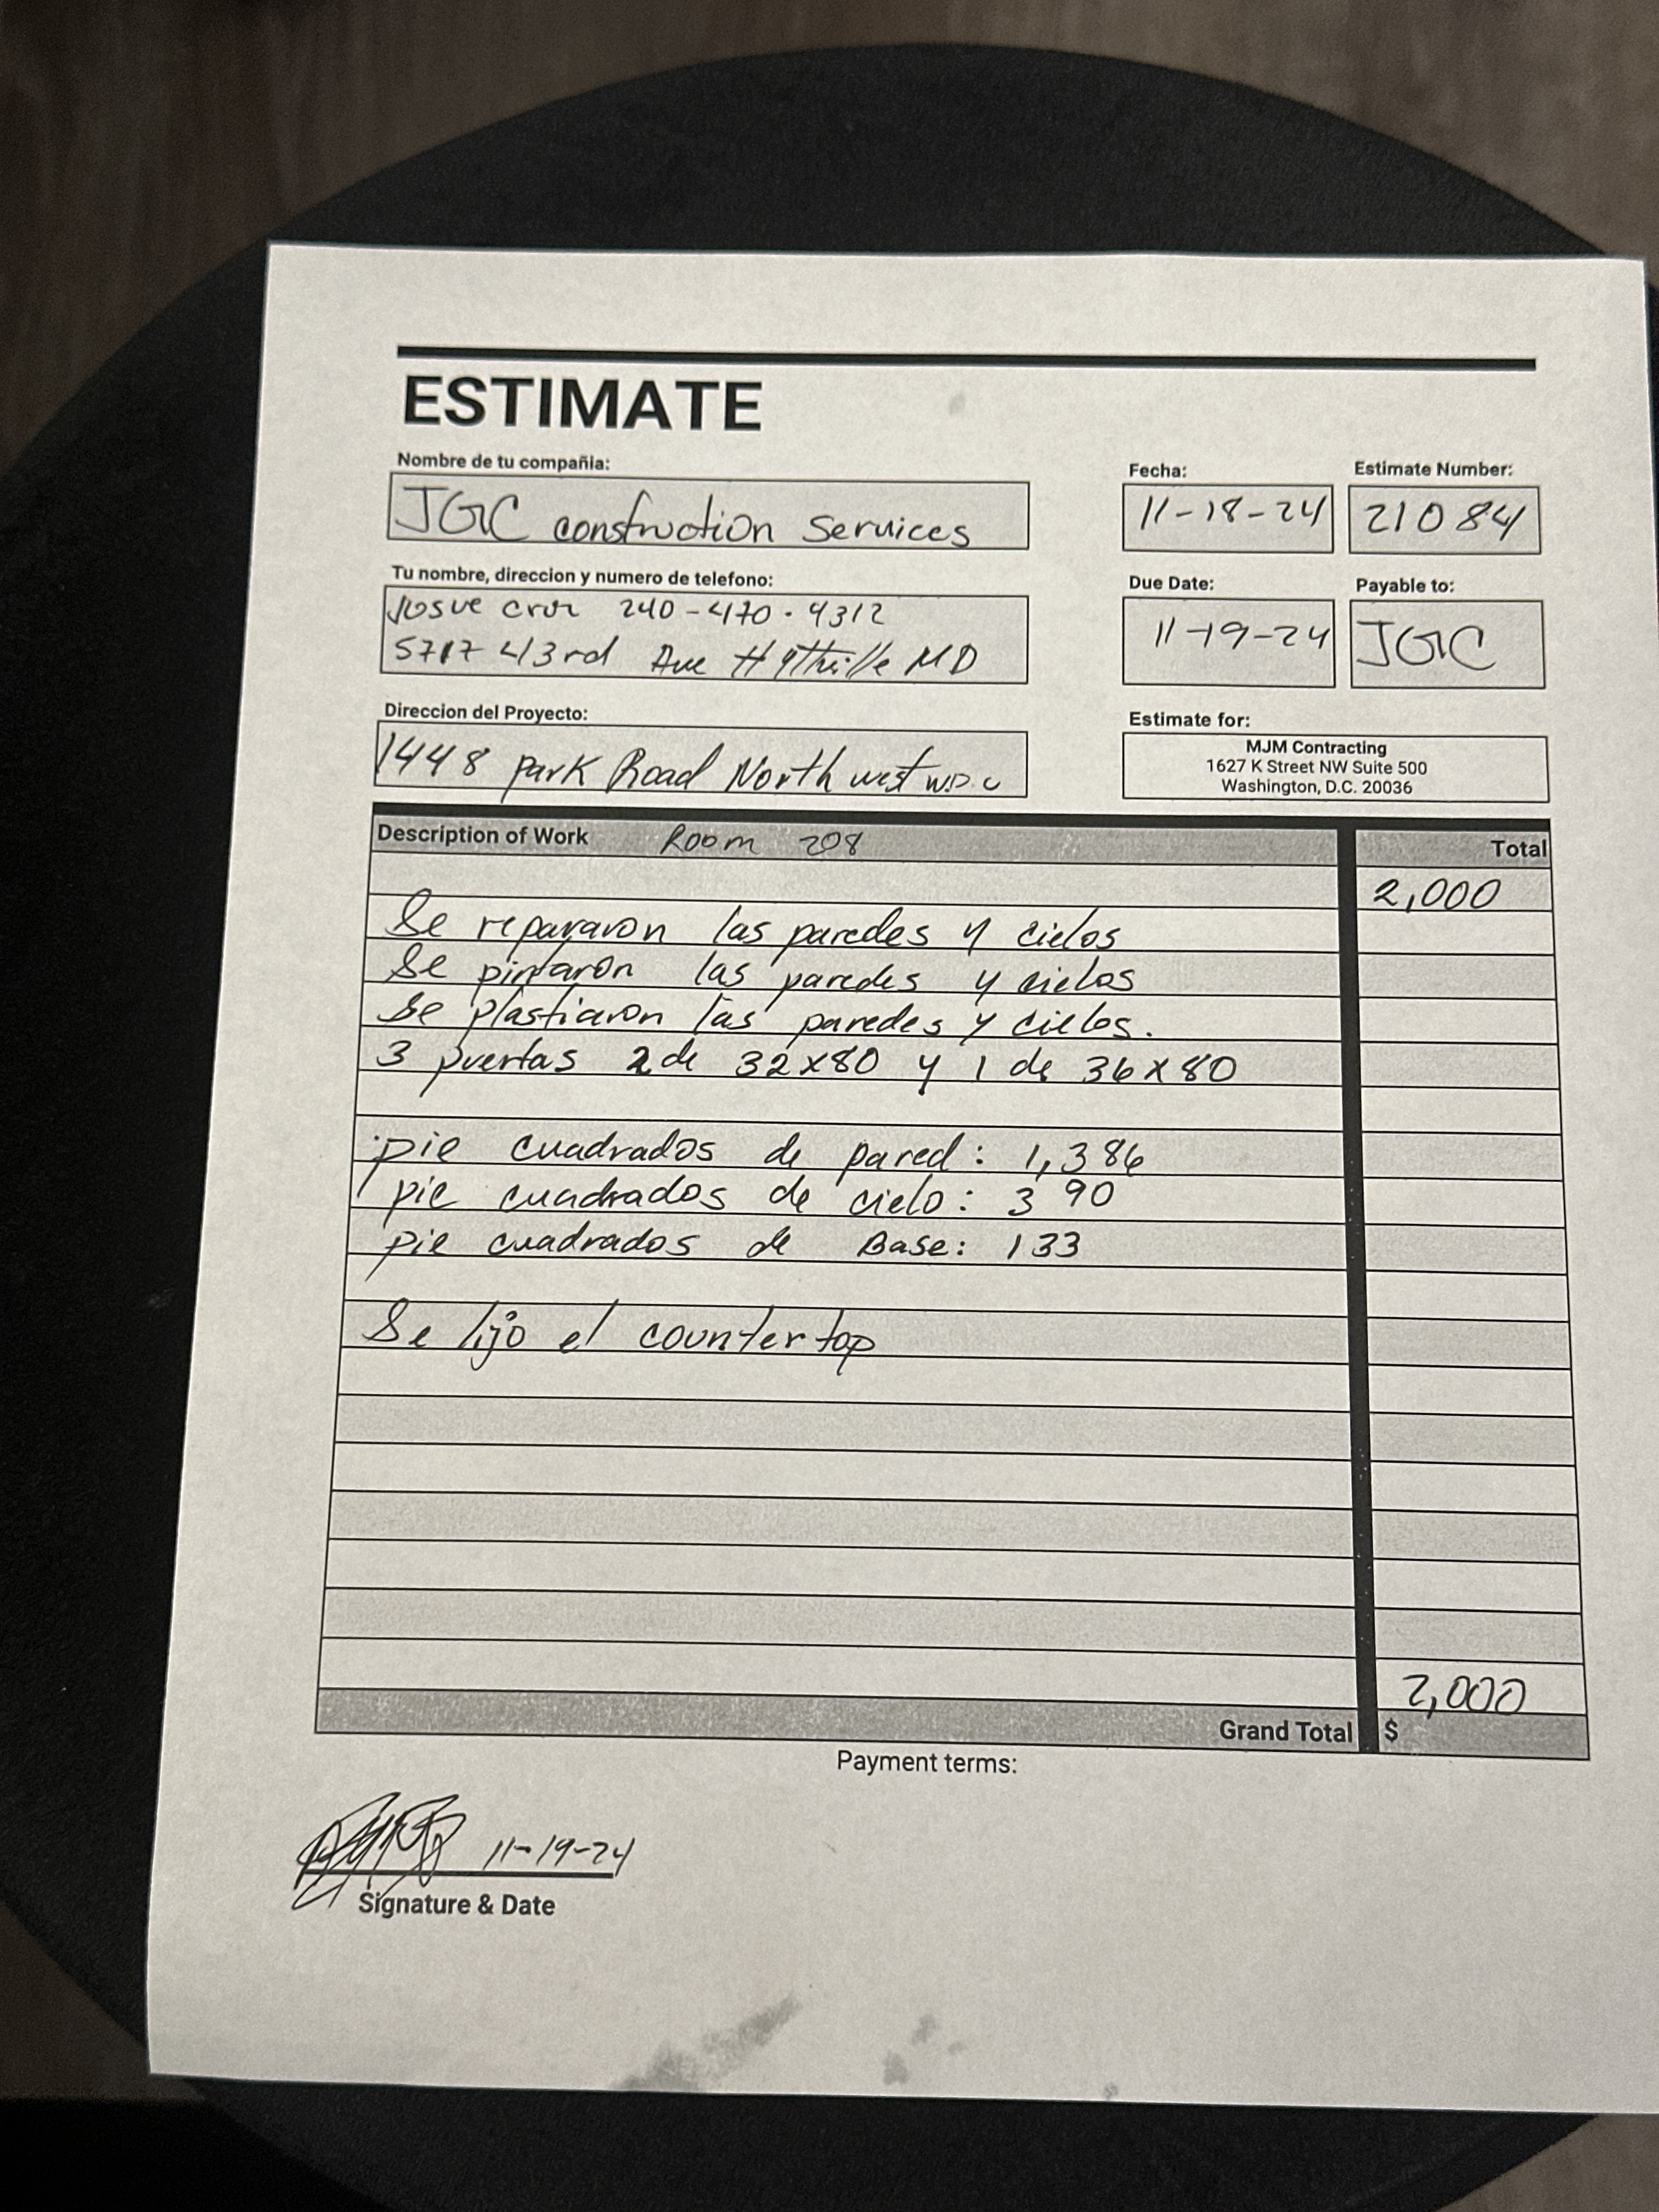 ESTIMATE
Nombre de tu compañia:
JGC construction Services
Fecha:
11-18-24
Estimate Number:
21084
Tu nombre, direccion y numero de telefono:
Josue Cruz 240-470-9312
5717 43rd Ave MD
Due Date:
11-19-24
Payable to:
JGC
Direccion del Proyecto:
1448 park Road North west W.D.C
Estimate for:
MJM Contracting
1627 K Street NW Suite 500
Washington, D.C. 20036
Description of Work Room 208
Total
2,000
Se repararon las paredes y cielos
Se pintaron las paredes y cielos
Se plastiaron las paredes y cielos.
3 puertas 2 de 32x80 y 1 de 36x80
pie cuadrados de pared: 1,386
pie cuadrados de cielo: 390
pie cuadrados de Base: 133
Se lijo el countertop
2,000
Grand Total $
Payment terms:
11-19-24
Signature & Date